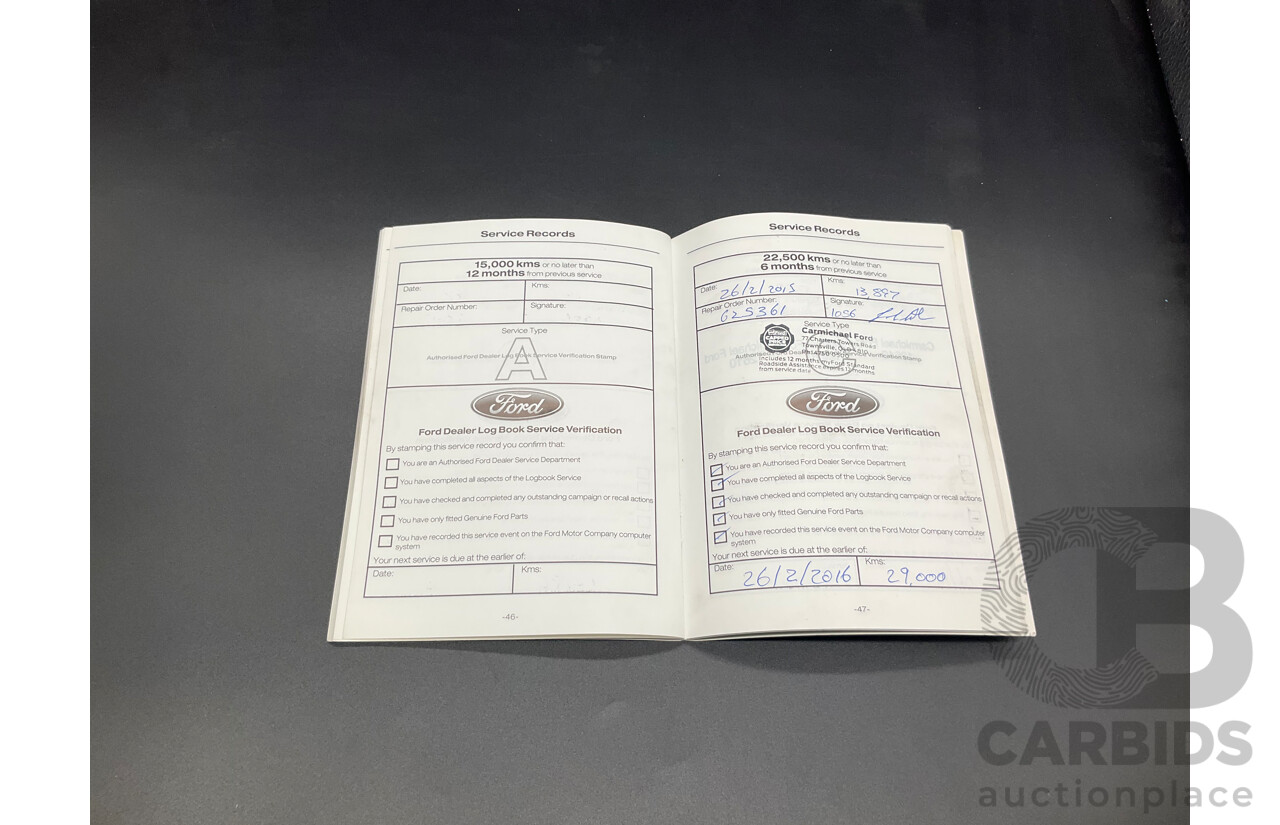 Service Records
15,000 kms or no later than
12 months from previous service
Date:
Kms:
Repair Order Number:
Signature:
Service Type
A
Authorised Ford Dealer Log Book Service Verification Stamp
Ford
Ford Dealer Log Book Service Verification
By stamping this service record you confirm that:
You are an Authorised Ford Dealer Service Department
You have completed all aspects of the Logbook Service
You have checked and completed any outstanding campaign or recall actions
You have only fitted Genuine Ford Parts
You have recorded this service event on the Ford Motor Company computer
system
Your next service is due at the earlier of:
Date:
Kms:
-46-
Service Records
22,500 kms or no later than
6 months from previous service
Date: 26/2/2015
Kms: 13,897
Repair Order Number: 625361
Signature: 1056
Service Type
Carmichael Ford
77 Charters Towers Road
Townsville, QLD
Authorised Ford Dealer Service Verification Stamp
Includes 12 months myFord Standard
Roadside Assistance expires 12 months
from service date
Ford
Ford Dealer Log Book Service Verification
By stamping this service record you confirm that:
You are an Authorised Ford Dealer Service Department
You have completed all aspects of the Logbook Service
You have checked and completed any outstanding campaign or recall actions
You have only fitted Genuine Ford Parts
You have recorded this service event on the Ford Motor Company computer
system
Your next service is due at the earlier of:
Date: 26/2/2016
Kms: 29,000
-47-
CB
CARBIDS
auctionplace